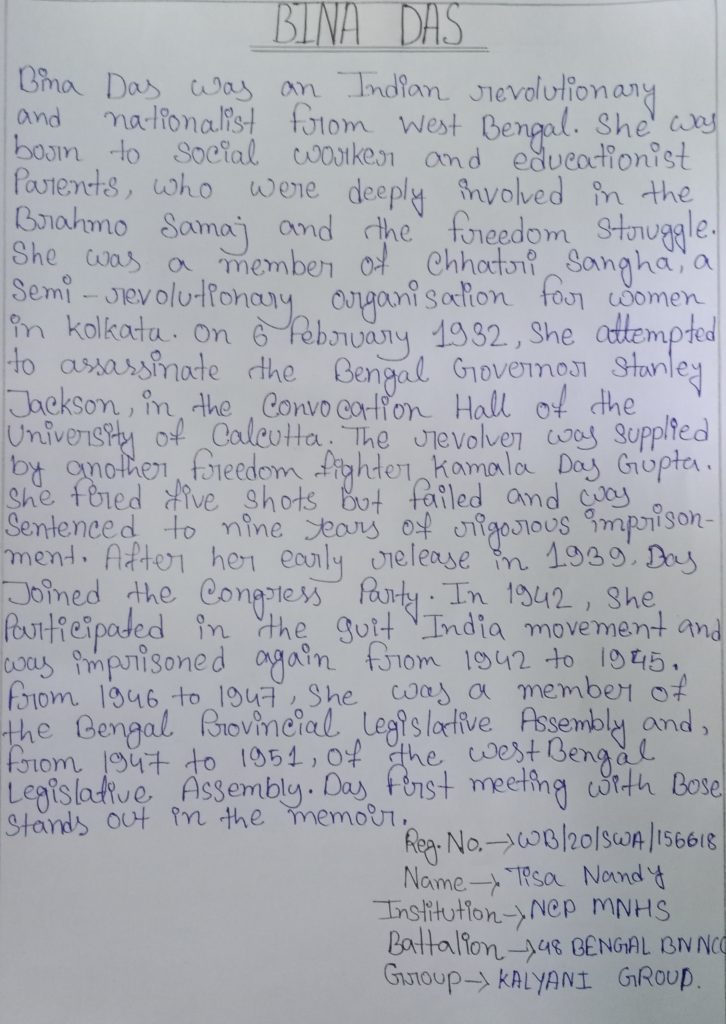 BINA DAS
Bina Das was an Indian revolutionary
and nationalist from West Bengal. She was
born to Social worker and educationist
Parents, who were deeply involved in the
Brahmo Samaj and the freedom Struggle.
She was a member of Chhatri Sangha, a
Semi-revolutionary organisation for women
in kolkata. On 6 February 1932, She attempted
to assassinate the Bengal Governor Stanley
Jackson, in the Convocation Hall of the
University of Calcutta. The revolver was Supplied
by another freedom fighter Kamala Das Gupta.
She fired five Shots but failed and was
Sentenced to nine years of rigorous imprison-
ment. After her early release in 1939, Das
Joined the Congress Party. In 1942, She
Participated in the Quit India movement and
was imprisoned again from 1942 to 1945.
From 1946 to 1947, She was a member of
the Bengal Provincial Legislative Assembly and,
from 1947 to 1951, of the West Bengal
Legislative Assembly. Das First meeting with Bose
Stands out in the memoir.
Reg. No.→WB/20/SWA/156618
Name→Tisa Nandy
Institution→NCP MNHS
Battalion→48 BENGAL BN NCC
Group→KALYANI GROUP.